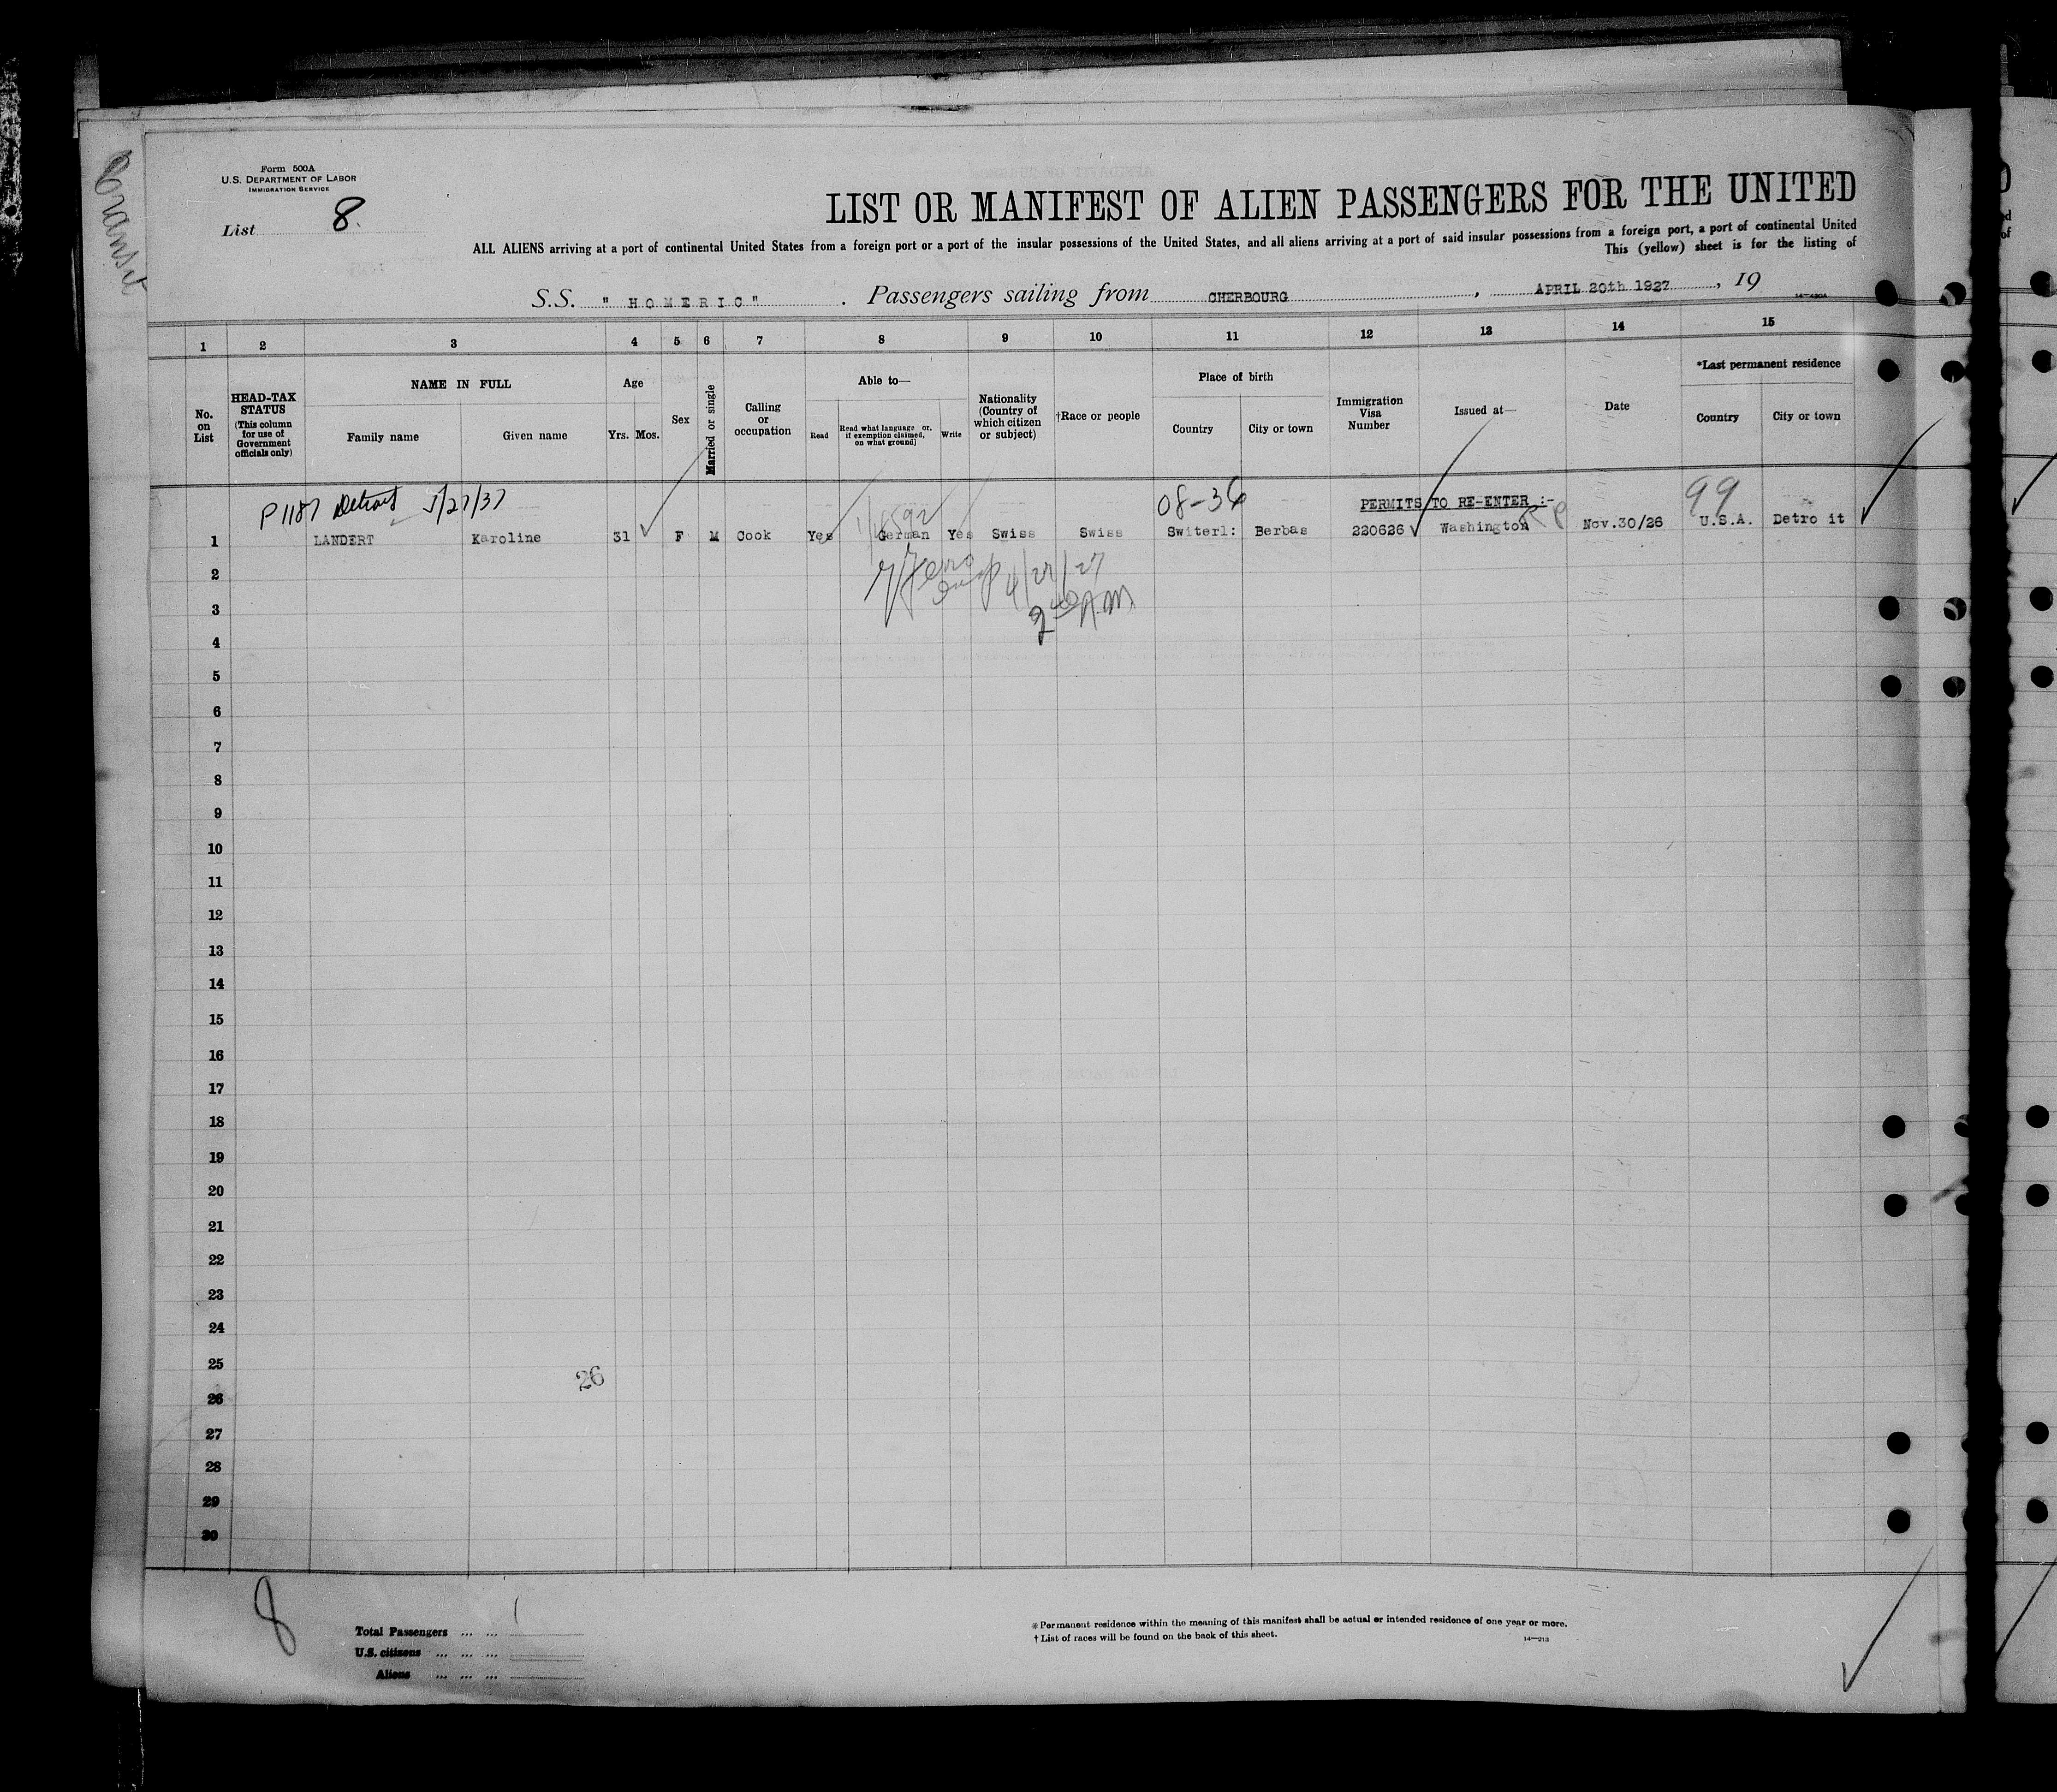 Transit
Form 500A
U.S. DEPARTMENT OF LABOR
IMMIGRATION SERVICE
List 8.
LIST OR MANIFEST OF ALIEN PASSENGERS FOR THE UNITED
ALL ALIENS arriving at a port of continental United States from a foreign port or a port of the insular possessions of the United States, and all aliens arriving at a port of said insular possessions from a foreign port, a port of continental United
This (yellow) sheet is for the listing of
S.S. "HOMERIC" . Passengers sailing from CHERBOURG , APRIL 20th 1927 , 19
14—430A
1 2 3 4 5 6 7 8 9 10 11 12 13 14 15
No. on List
HEAD-TAX STATUS (This column for use of Government officials only)
NAME IN FULL
Family name Given name
Age
Yrs. Mos.
Sex
Married or single
Calling or occupation
Able to—
Read
Read what language or, if exemption claimed, on what ground
Write
Nationality (Country of which citizen or subject)
†Race or people
Place of birth
Country City or town
Immigration Visa Number
Issued at—
Date
*Last permanent residence
Country City or town
P1187 Detroit 5/27/37 08-36 PERMITS TO RE-ENTER :- 99
1 LANDERT Karoline 31 F M Cook Yes German Yes Swiss Swiss Switerl: Berbas 220626 Washington Nov.30/26 U.S.A. Detro it
2
4/27/27
3
A.M
4
5
6
7
8
9
10
11
12
13
14
15
16
17
18
19
20
21
22
23
24
25
26
26
27
28
29
30
8
Total Passengers ... ... 1
U.S. citizens ... ... ...
Aliens ... ... ...
* Permanent residence within the meaning of this manifest shall be actual or intended residence of one year or more.
† List of races will be found on the back of this sheet.
14—213